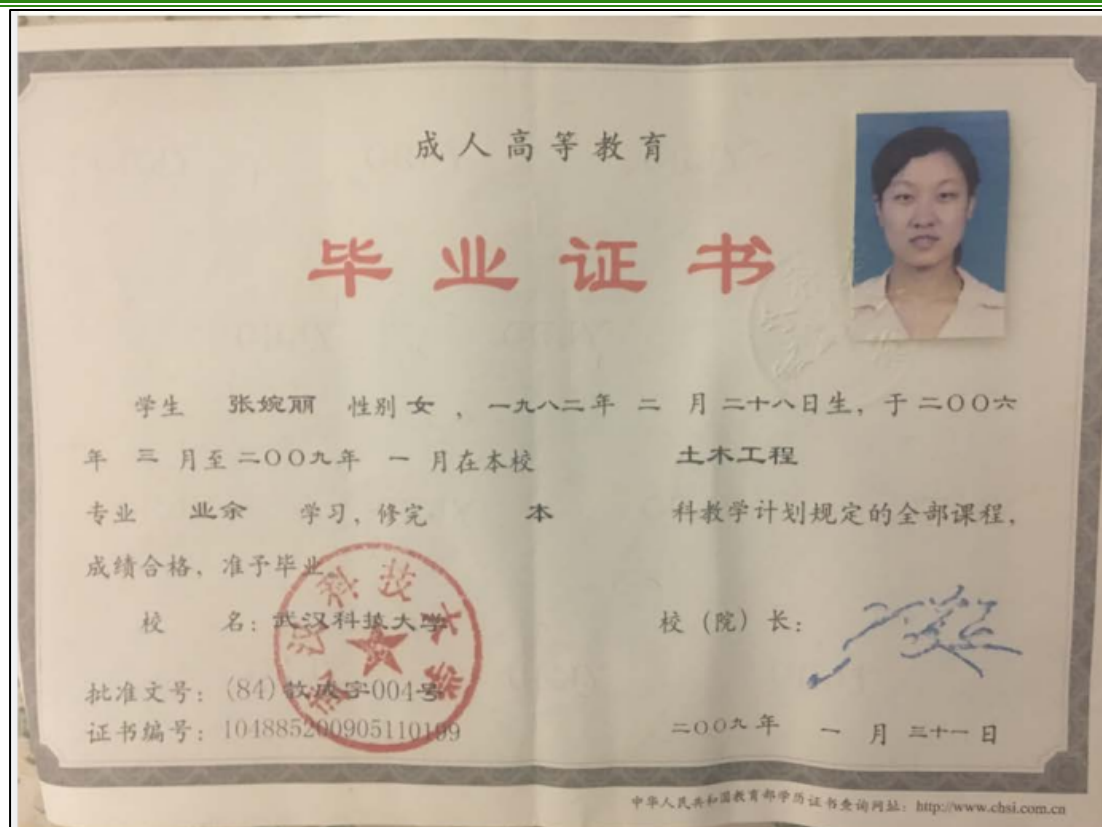 成人高等教育
毕业证书
学生 张婉丽 性别 女 ，一九八二年 二 月 二十八日生，于 二〇〇六
年 三 月至 二〇〇九年 一 月在本校 土木工程
专业 业余 学习，修完 本 科教学计划规定的全部课程，
成绩合格，准予毕业。
校 名：武汉科技大学
校（院）长：
武汉科技大学
批准文号：(84) 教成字004号
证书编号：104885200905110199
二〇〇九年 一 月 三十一日
中华人民共和国教育部学历证书查询网址：http://www.chsi.com.cn